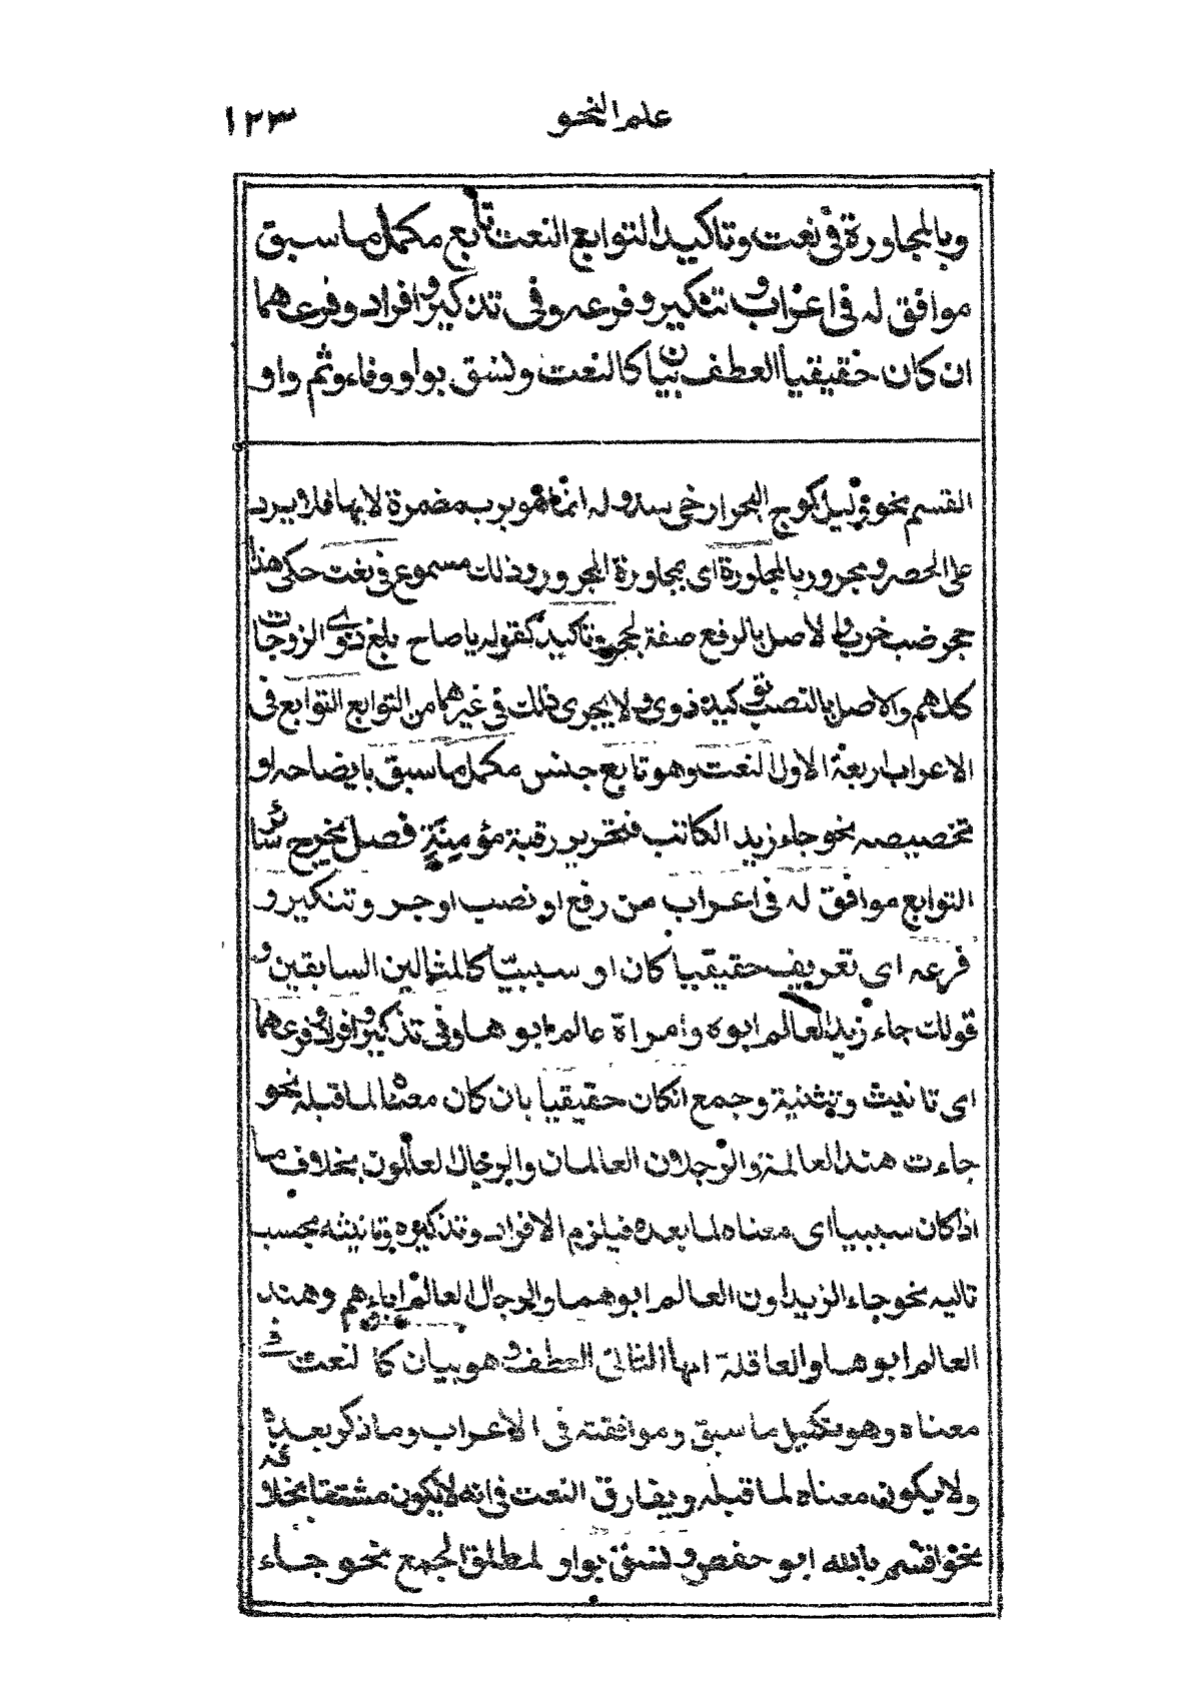 علم النحو ١٢٣
وبالمجاورة فى نعت وتاكيد التوابع النعت تابع مكمل ما سبق
موافق له فى اعراب وتنكير وفرعه وفى تذكير وافراد وفرعهما
ان كان حقيقيا العطف بيانا كالنعت ونسق بواو وفاء وثم واو
القسم نحو وليل كموج البحر ارخى سدوله انما هو برب مضمرة لا بها فلا يرد
على الحصر ومجرور بالمجاورة اى بمجاورة المجرور وذلك مسموع فى نعت حكى هذا
حجر ضب خرب والاصل بالرفع صفة لحجر وتاكيد كقوله يا صاح بلغ ذوى الزوجات
كلهم والاصل بالنصب توكيد ذوى ولا يجرى ذلك فى غيرهما من التوابع التوابع فى
الاعراب اربعة الاول النعت وهو تابع جنس مكمل ما سبق بايضاحه او
تخصيصه نحو جاء زيد الكاتب فتحرير رقبة مؤمنة فصل يخرج سائر
التوابع موافق له فى اعراب من رفع او نصب او جر وتنكير و
فرعه اى تعريف حقيقيا كان او سببيا كالمثالين السابقين و
قولك جاء زيد العالم ابوه وامراة عالم ابوها وفى تذكير وافراد وفرعهما
اى تانيث وتثنية وجمع انكان حقيقيا بان كان معناه لما قبله نحو
جاءت هند العالمة والرجلان العالمان والرجال العالمون بخلاف ما
اذا كان سببيا اى معناه لما بعده فيلزم الافراد وتذكيره وتانيثه بحسب
تاليه نحو جاء الزيداون العالم ابوهما والرجال العالم اباءهم وهند
العالم ابوها والعاقلة امها الثانى العطف وهو بيان كالنعت فى
معناه وهو تكميل ما سبق وموافقته فى الاعراب وما ذكر بعده
ولا يكون معناه لما قبله ويفارق النعت فى انه لا يكون مشتقا بخلافه
نحو اقسم بالله ابو حفص ونسق بواو لمطلق الجمع نحو جاء